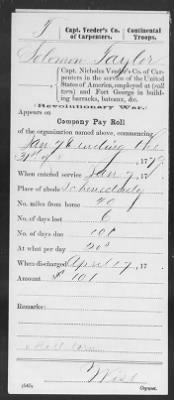 T
Capt. Veeder's Co. of Carpenters.
Continental Troops.
Solomon Taylor
Capt. Nicholas Veeder's Co. of Carpenters in the service of the United States of America, employed at
and Fort George in building barracks, bateaux, &c.
Revolutionary War.
Appears on
Company Pay Roll
of the organization named above, commencing
Jan 7 & ending the
177
When entered service Jan 7, 177
Place of abode Schenectady
No. miles from home 40
No. of days lost 6
No. of days due 101
At what per day 20s
When discharged April 17, 177
Amount $ 101
Remarks:
Copyist.